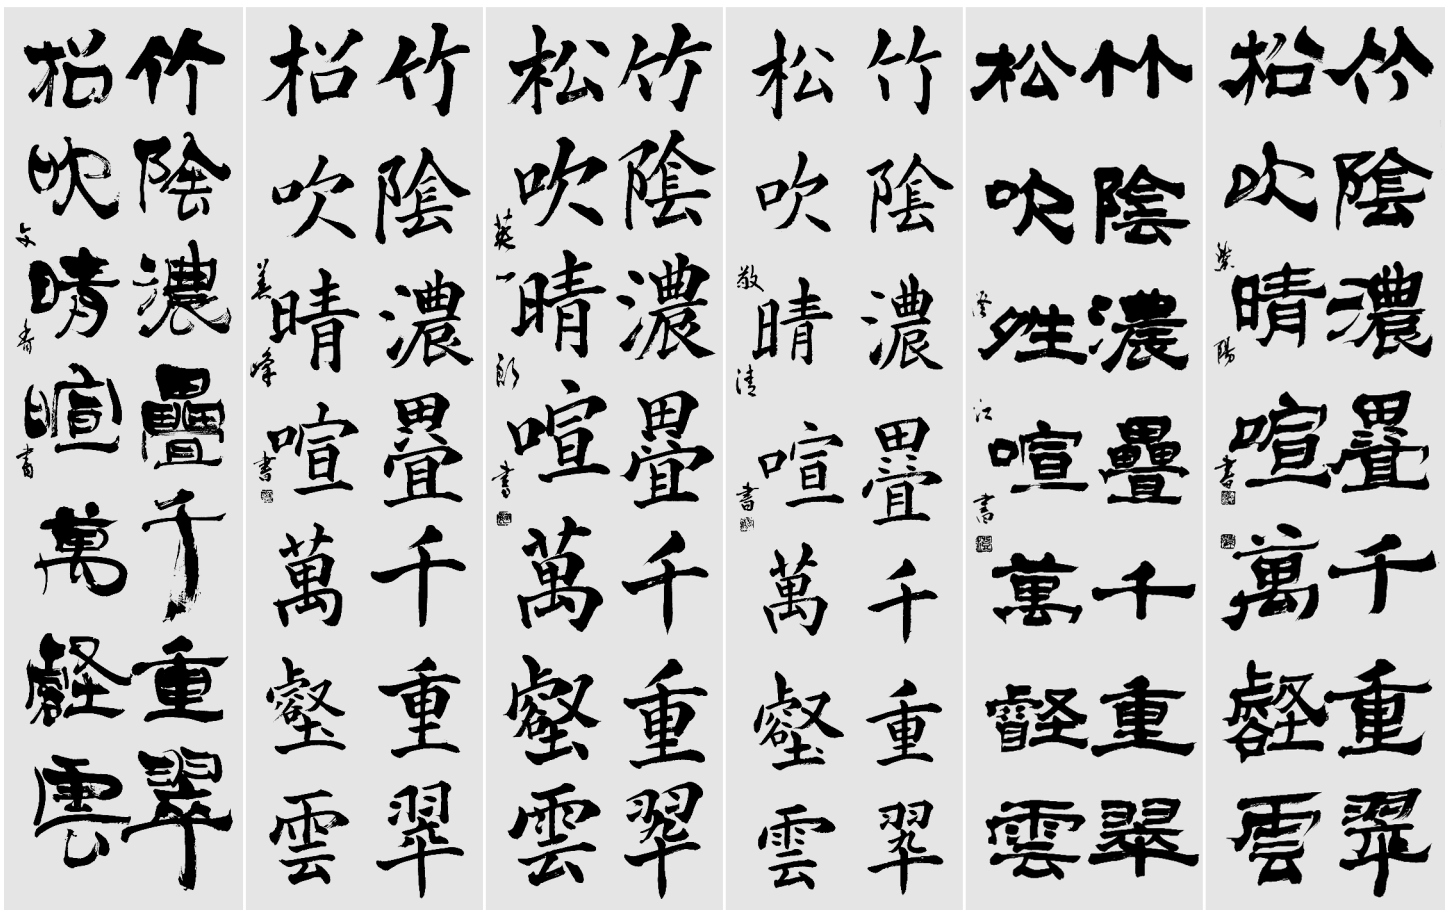 竹陰濃疊千重翠
柗吹晴喧萬壑雲
紫陽書
竹陰濃疊千重翠
松吹夝喧萬壑雲
澄江書
竹陰濃疊千重翠
松吹晴喧萬壑雲
敬清書
竹陰濃疊千重翠
松吹晴喧萬壑雲
英一郎書
竹陰濃疊千重翠
柗吹晴喧萬壑雲
美峰書
竹陰濃疊千重翠
柗吹晴暄萬壑雲
文香書